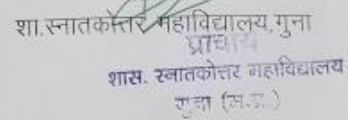 शा.स्नातकोत्तर महाविद्यालय,गुना
प्राचार्य
शास. स्नातकोत्तर महाविद्यालय
गुना (म.प्र.)